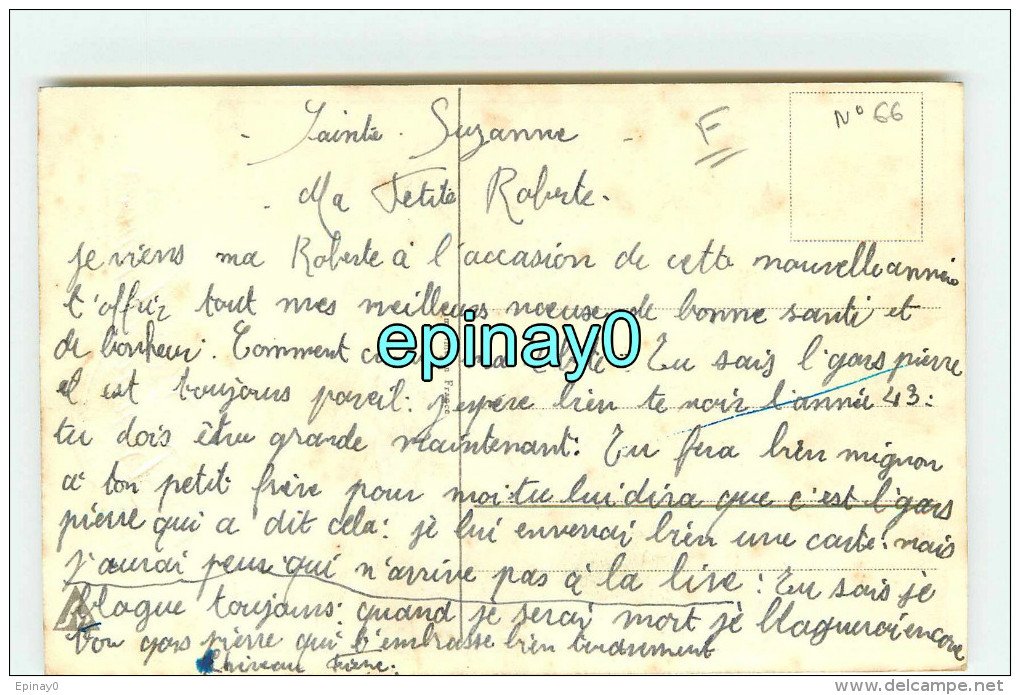 Sainte Suzanne
F
N° 66
Ma Petite Roberte.
je viens ma Roberte à l'accasion de cette nouvelle année
t'offrir tout mes meilleurs voeuse de bonne santé et
de bonheur. Comment ma Tu sais l'gars pierre
el est toujours pareil: j'espère bien te voir l'année 43:
tu dois être grande maintenant: Tu fera bien mignon
a ton petit frère pour moi: tu lui dira que c'est l'gars
pierre qui a dit cela: je lui enverrai bien une carte: mais
j'aurai peur qui n'arrive pas à la lire: Tu sais je
blague toujours: quand je serai mort je blaguerai encore
Ton gars pierre qui t'embrasse bien tendrement
epinay0
Epinay0
www.delcampe.net